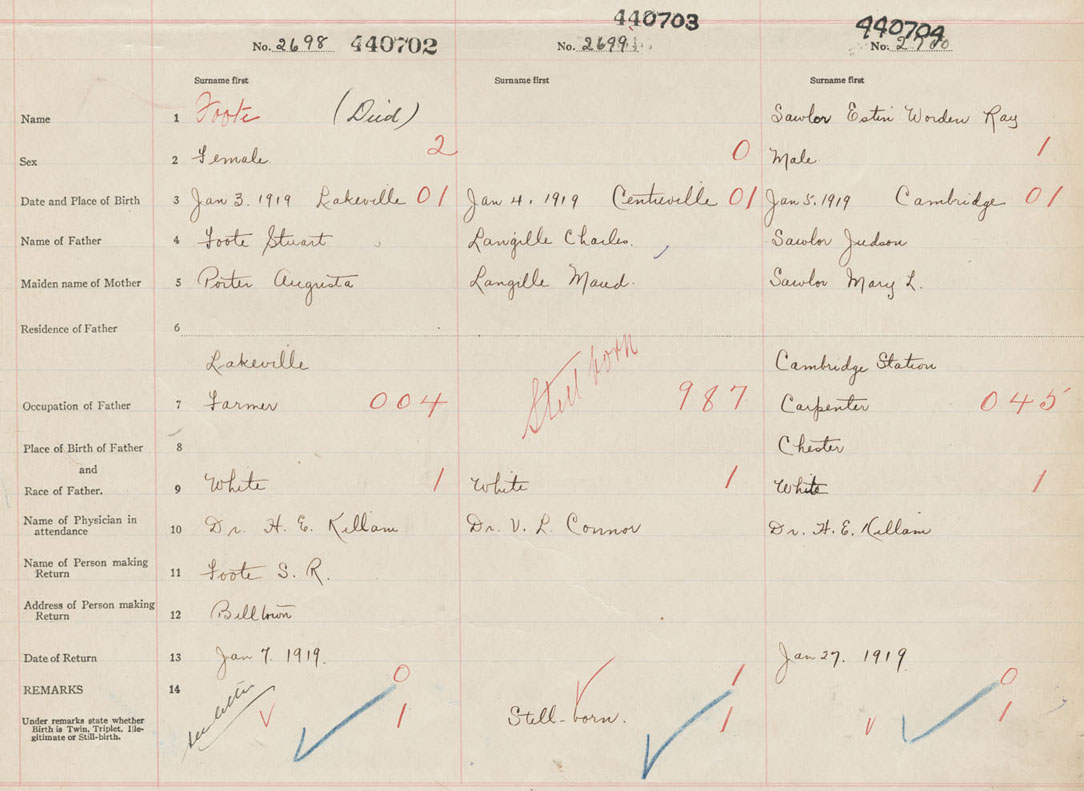 440703 440704
No. 2698 440702 No. 2699 No. 2700
Surname first Surname first Surname first
Name 1 Foote (Died) Sawlor Estin Worden Ray
Sex 2 Female 2 0 Male 1
Date and Place of Birth 3 Jan 3. 1919 Lakeville 01 Jan 4. 1919 Centreville 01 Jan 5. 1919 Cambridge 01
Name of Father 4 Foote Stuart Langille Charles. Sawlor Judson
Maiden name of Mother 5 Porter Augusta Langille Maud. Sawlor Mary L.
Residence of Father 6
Lakeville Still born Cambridge Station
Occupation of Father 7 Farmer 004 987 Carpenter 045
Place of Birth of Father 8 Chester
and
Race of Father. 9 White 1 White 1 White 1
Name of Physician in
attendance 10 Dr. H. E. Killam Dr. V. L. Connor Dr. H. E. Killam
Name of Person making
Return 11 Foote S. R.
Address of Person making
Return 12 Billtown
Date of Return 13 Jan 7. 1919. Jan 27. 1919
REMARKS 14 0 1 0
Under remarks state whether
Birth is Twin, Triplet, Ille-
gitimate or Still-birth. see letter 1 Still-born. 1 1